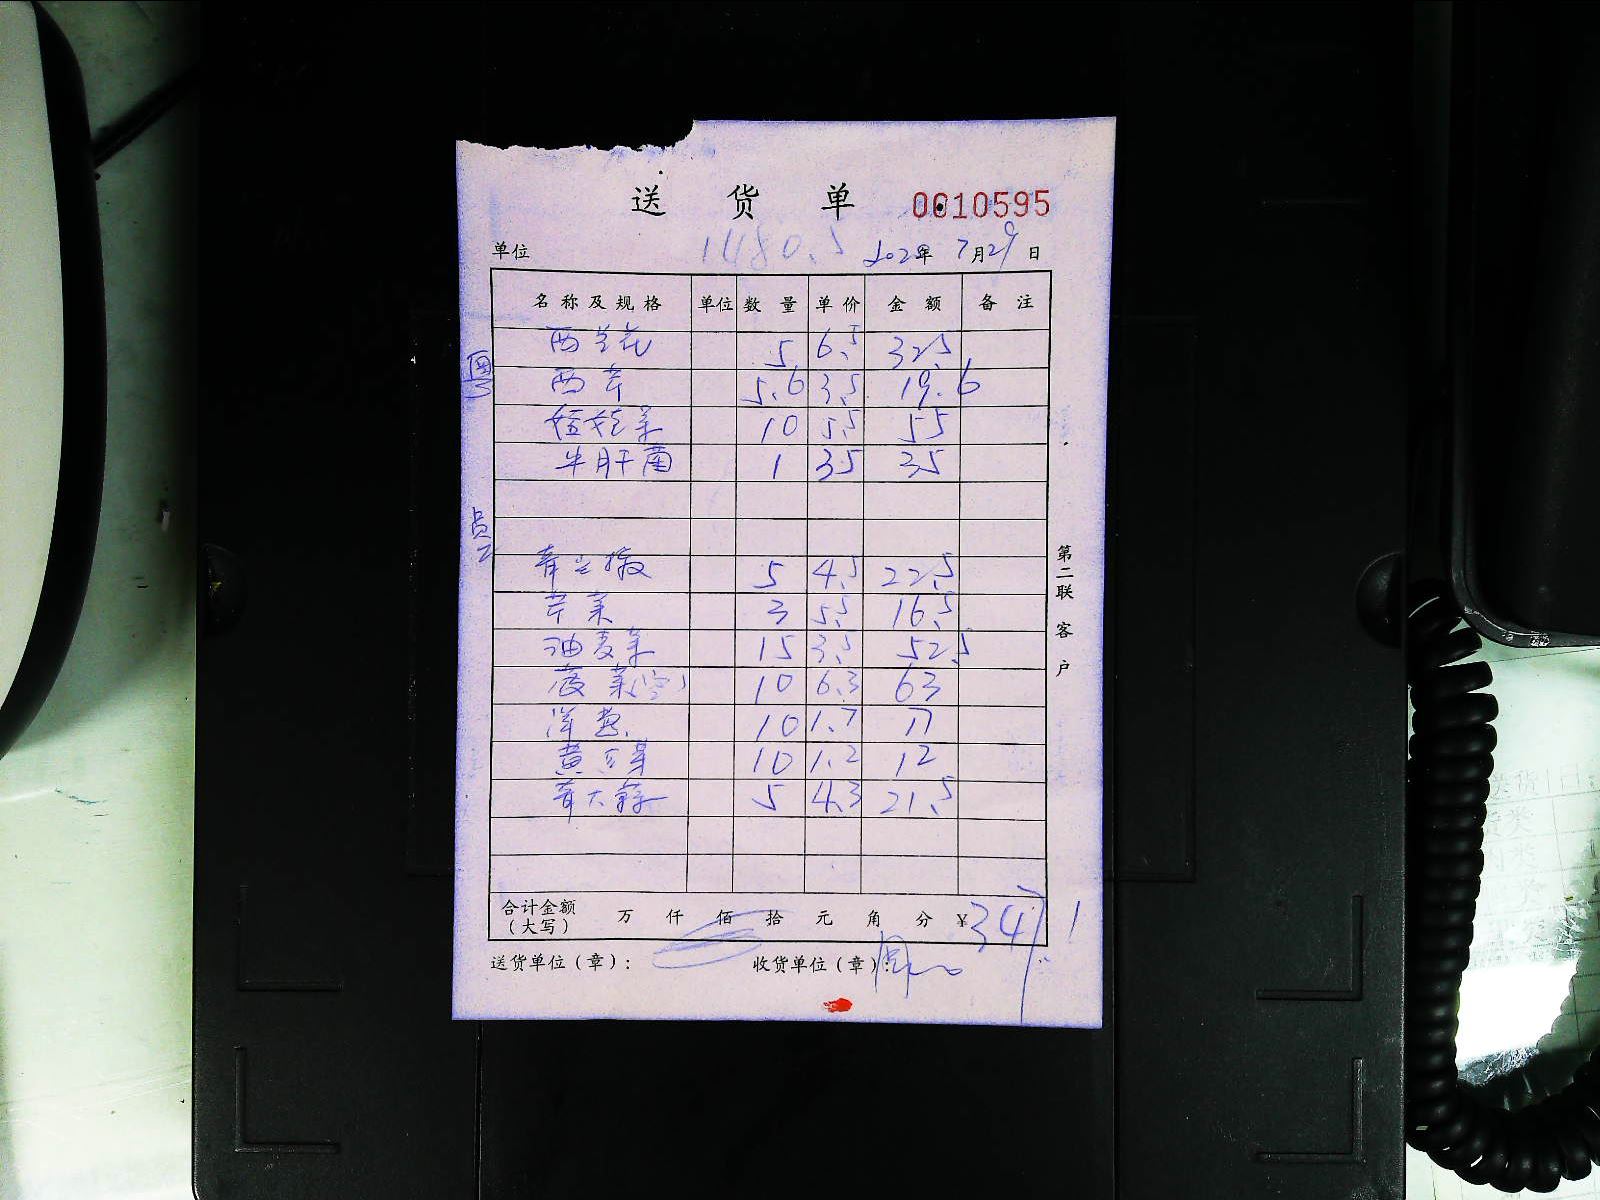 送 货 单 0010595
1480.5
单位 202 年 7 月 29 日
名称及规格 单位 数量 单价 金额 备注
粤
西兰花 5 6.5 32.5
西芹 5.6 3.5 19.6
娃娃菜 10 5.5 55
牛肝菌 1 35 35
员工
青 椒 5 4.5 22.5
芹菜 3 5.5 16.5
油麦菜 15 3.5 52.5
菠菜 10 6.3 63
洋葱 10 1.7 17
黄豆芽 10 1.2 12
青大蒜 5 4.3 21.5
合计金额（大写） 万 仟 佰 拾 元 角 分 ¥347.1
送货单位（章）： 收货单位（章）：
第二联 客户